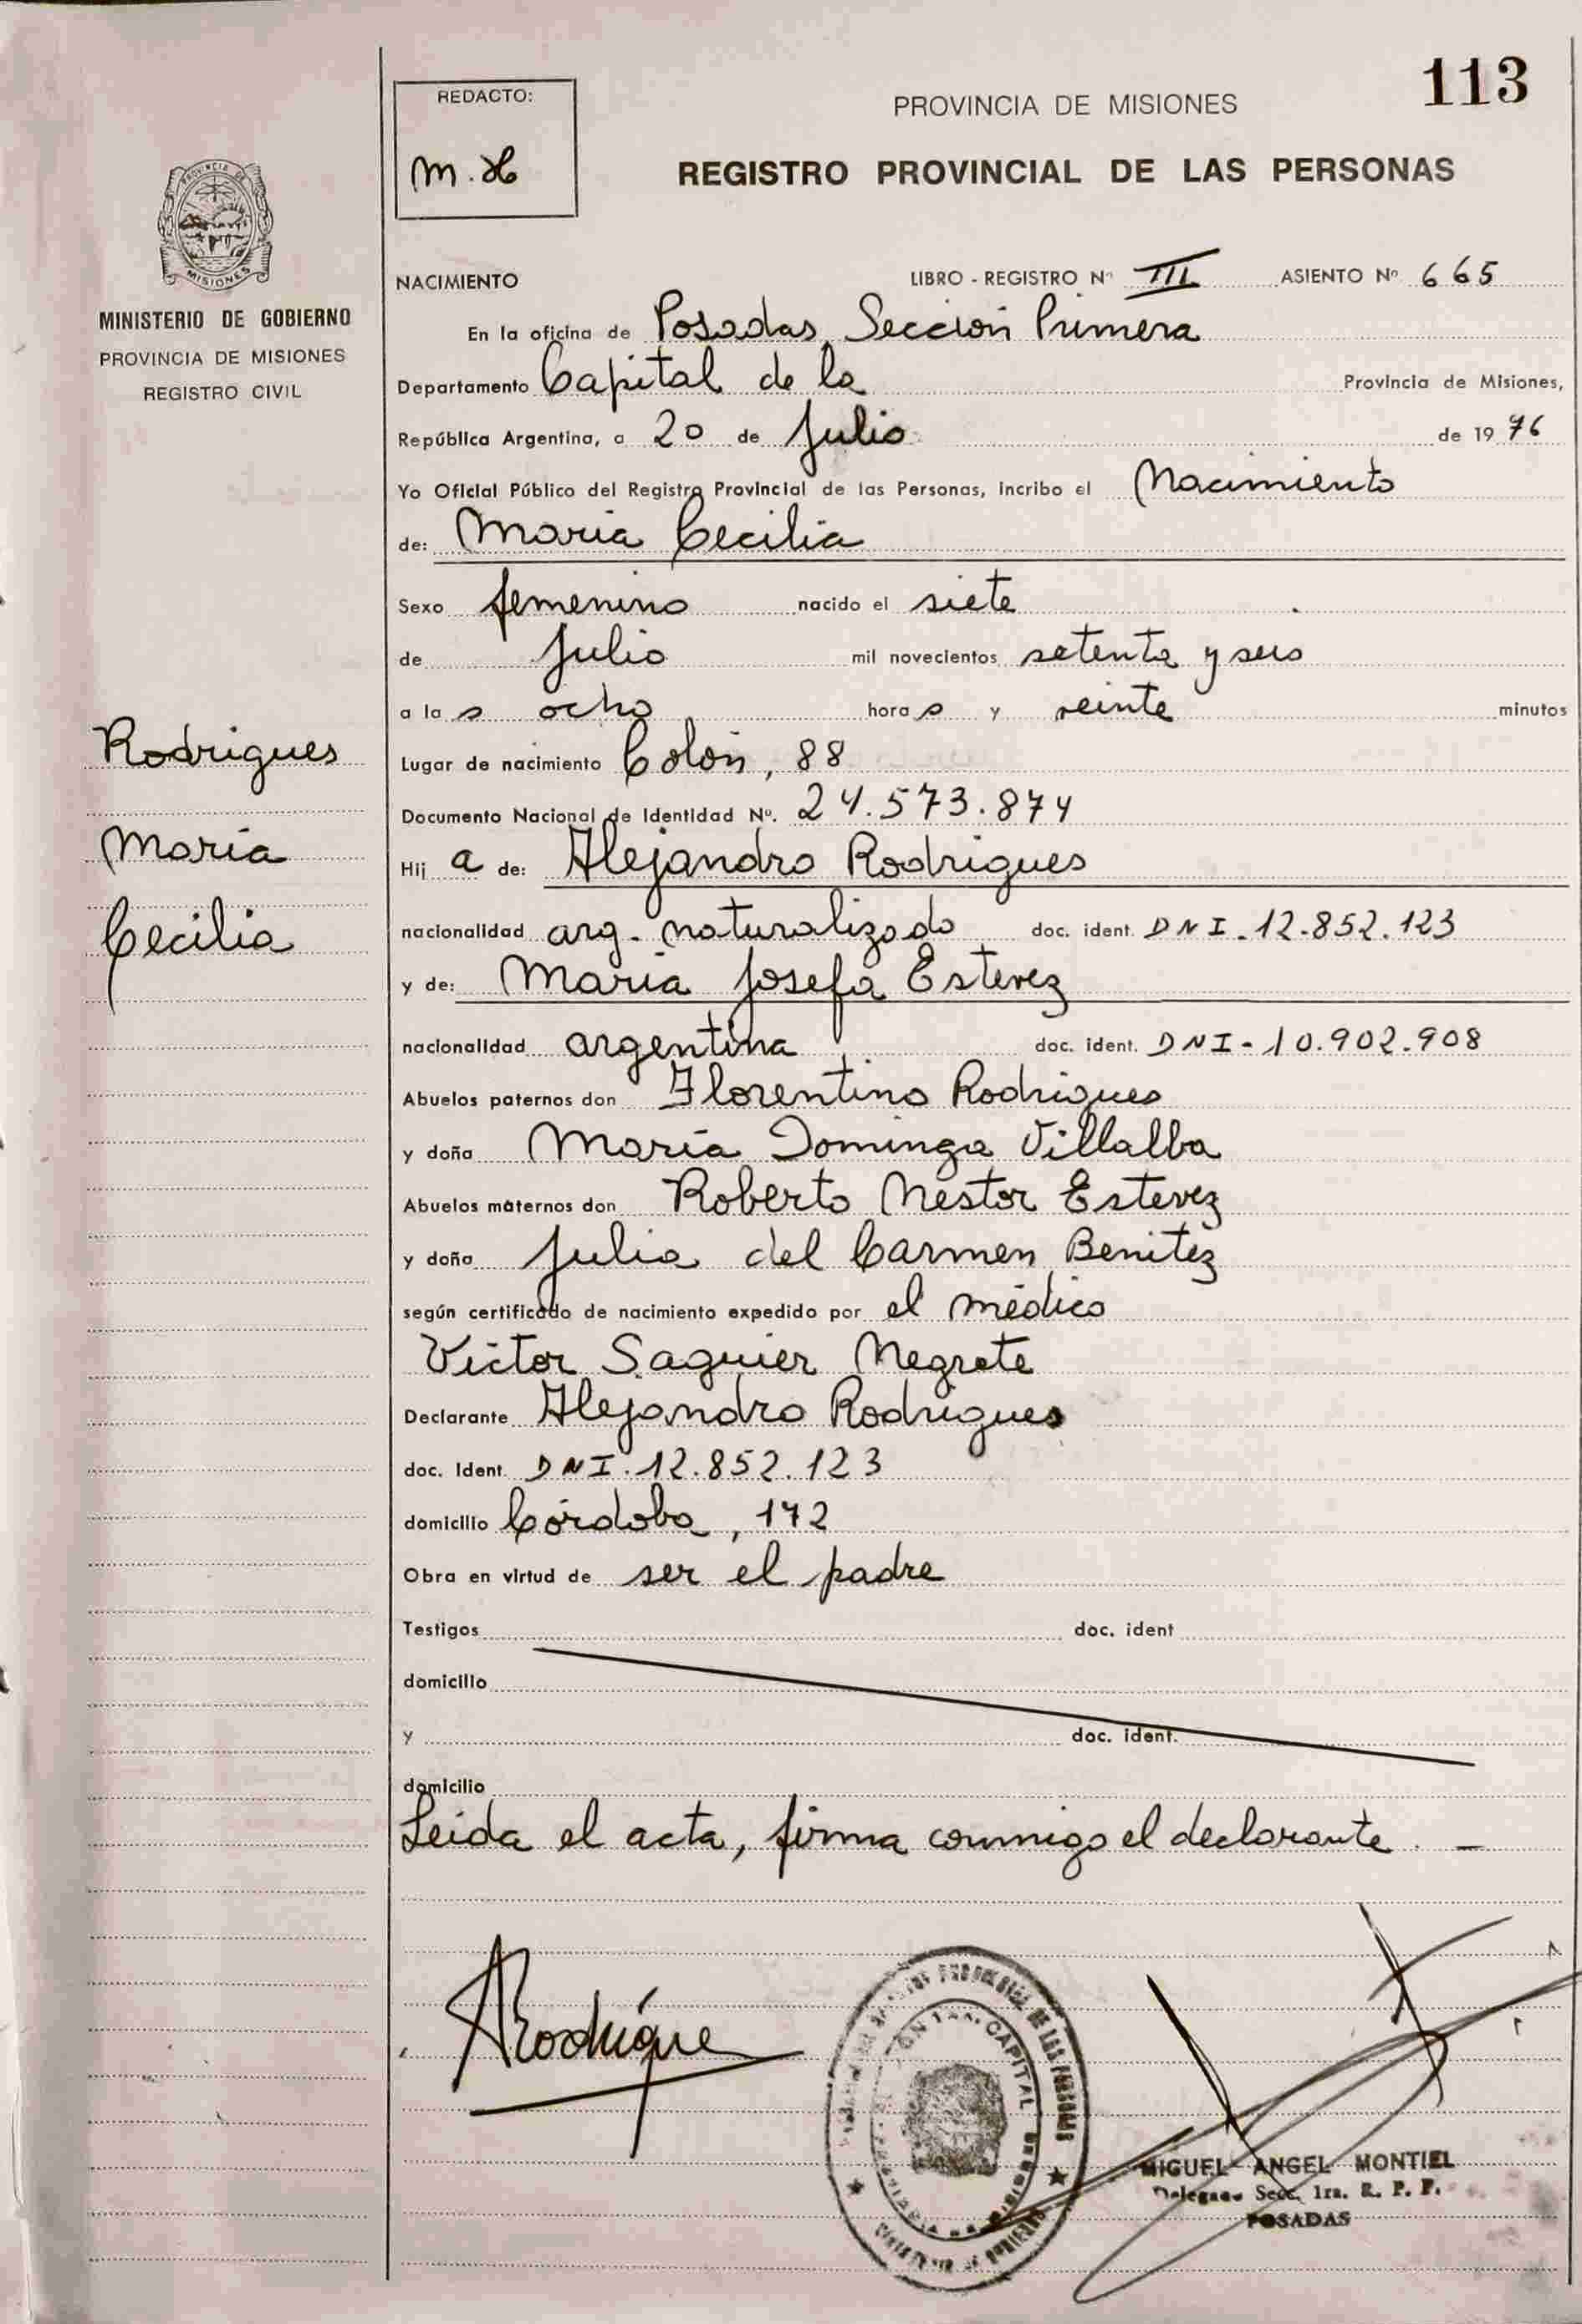 113
REDACTO:
M.H
PROVINCIA DE MISIONES
REGISTRO PROVINCIAL DE LAS PERSONAS
PROVINCIA DE
MISIONES
MINISTERIO DE GOBIERNO
PROVINCIA DE MISIONES
REGISTRO CIVIL
Rodrigues
María
Cecilia
NACIMIENTO LIBRO - REGISTRO Nº III ASIENTO Nº 665
En la oficina de Posadas, Sección Primera
Departamento Capital de la Provincia de Misiones,
República Argentina, a 20 de Julio de 1976
Yo Oficial Público del Registro Provincial de las Personas, incribo el Nacimiento
de: María Cecilia
Sexo femenino nacido el siete
de Julio mil novecientos setenta y seis
a las ocho horas y veinte minutos
Lugar de nacimiento Colón, 88
Documento Nacional de Identidad Nº. 24.573.874
Hija de: Alejandro Rodrigues
nacionalidad arg. naturalizado doc. ident. DNI. 12.852.123
y de: María Josefa Estevez
nacionalidad argentina doc. ident. DNI - 10.902.908
Abuelos paternos don Florentino Rodrigues
y doña María Dominga Villalba
Abuelos maternos don Roberto Nestor Estevez
y doña Julia del Carmen Benitez
según certificado de nacimiento expedido por el médico
Victor Saguier Negrete
Declarante Alejandro Rodrigues
doc. Ident. DNI. 12.852.123
domicilio Córdoba, 172
Obra en virtud de ser el padre
Testigos doc. ident
domicilio
y doc. ident.
domicilio
Leida el acta, firma conmigo el declarante. —
ARodrígue
CAPITAL
MIGUEL ANGEL MONTIEL
Delegado Secc. 1ra. R. P. P.
POSADAS